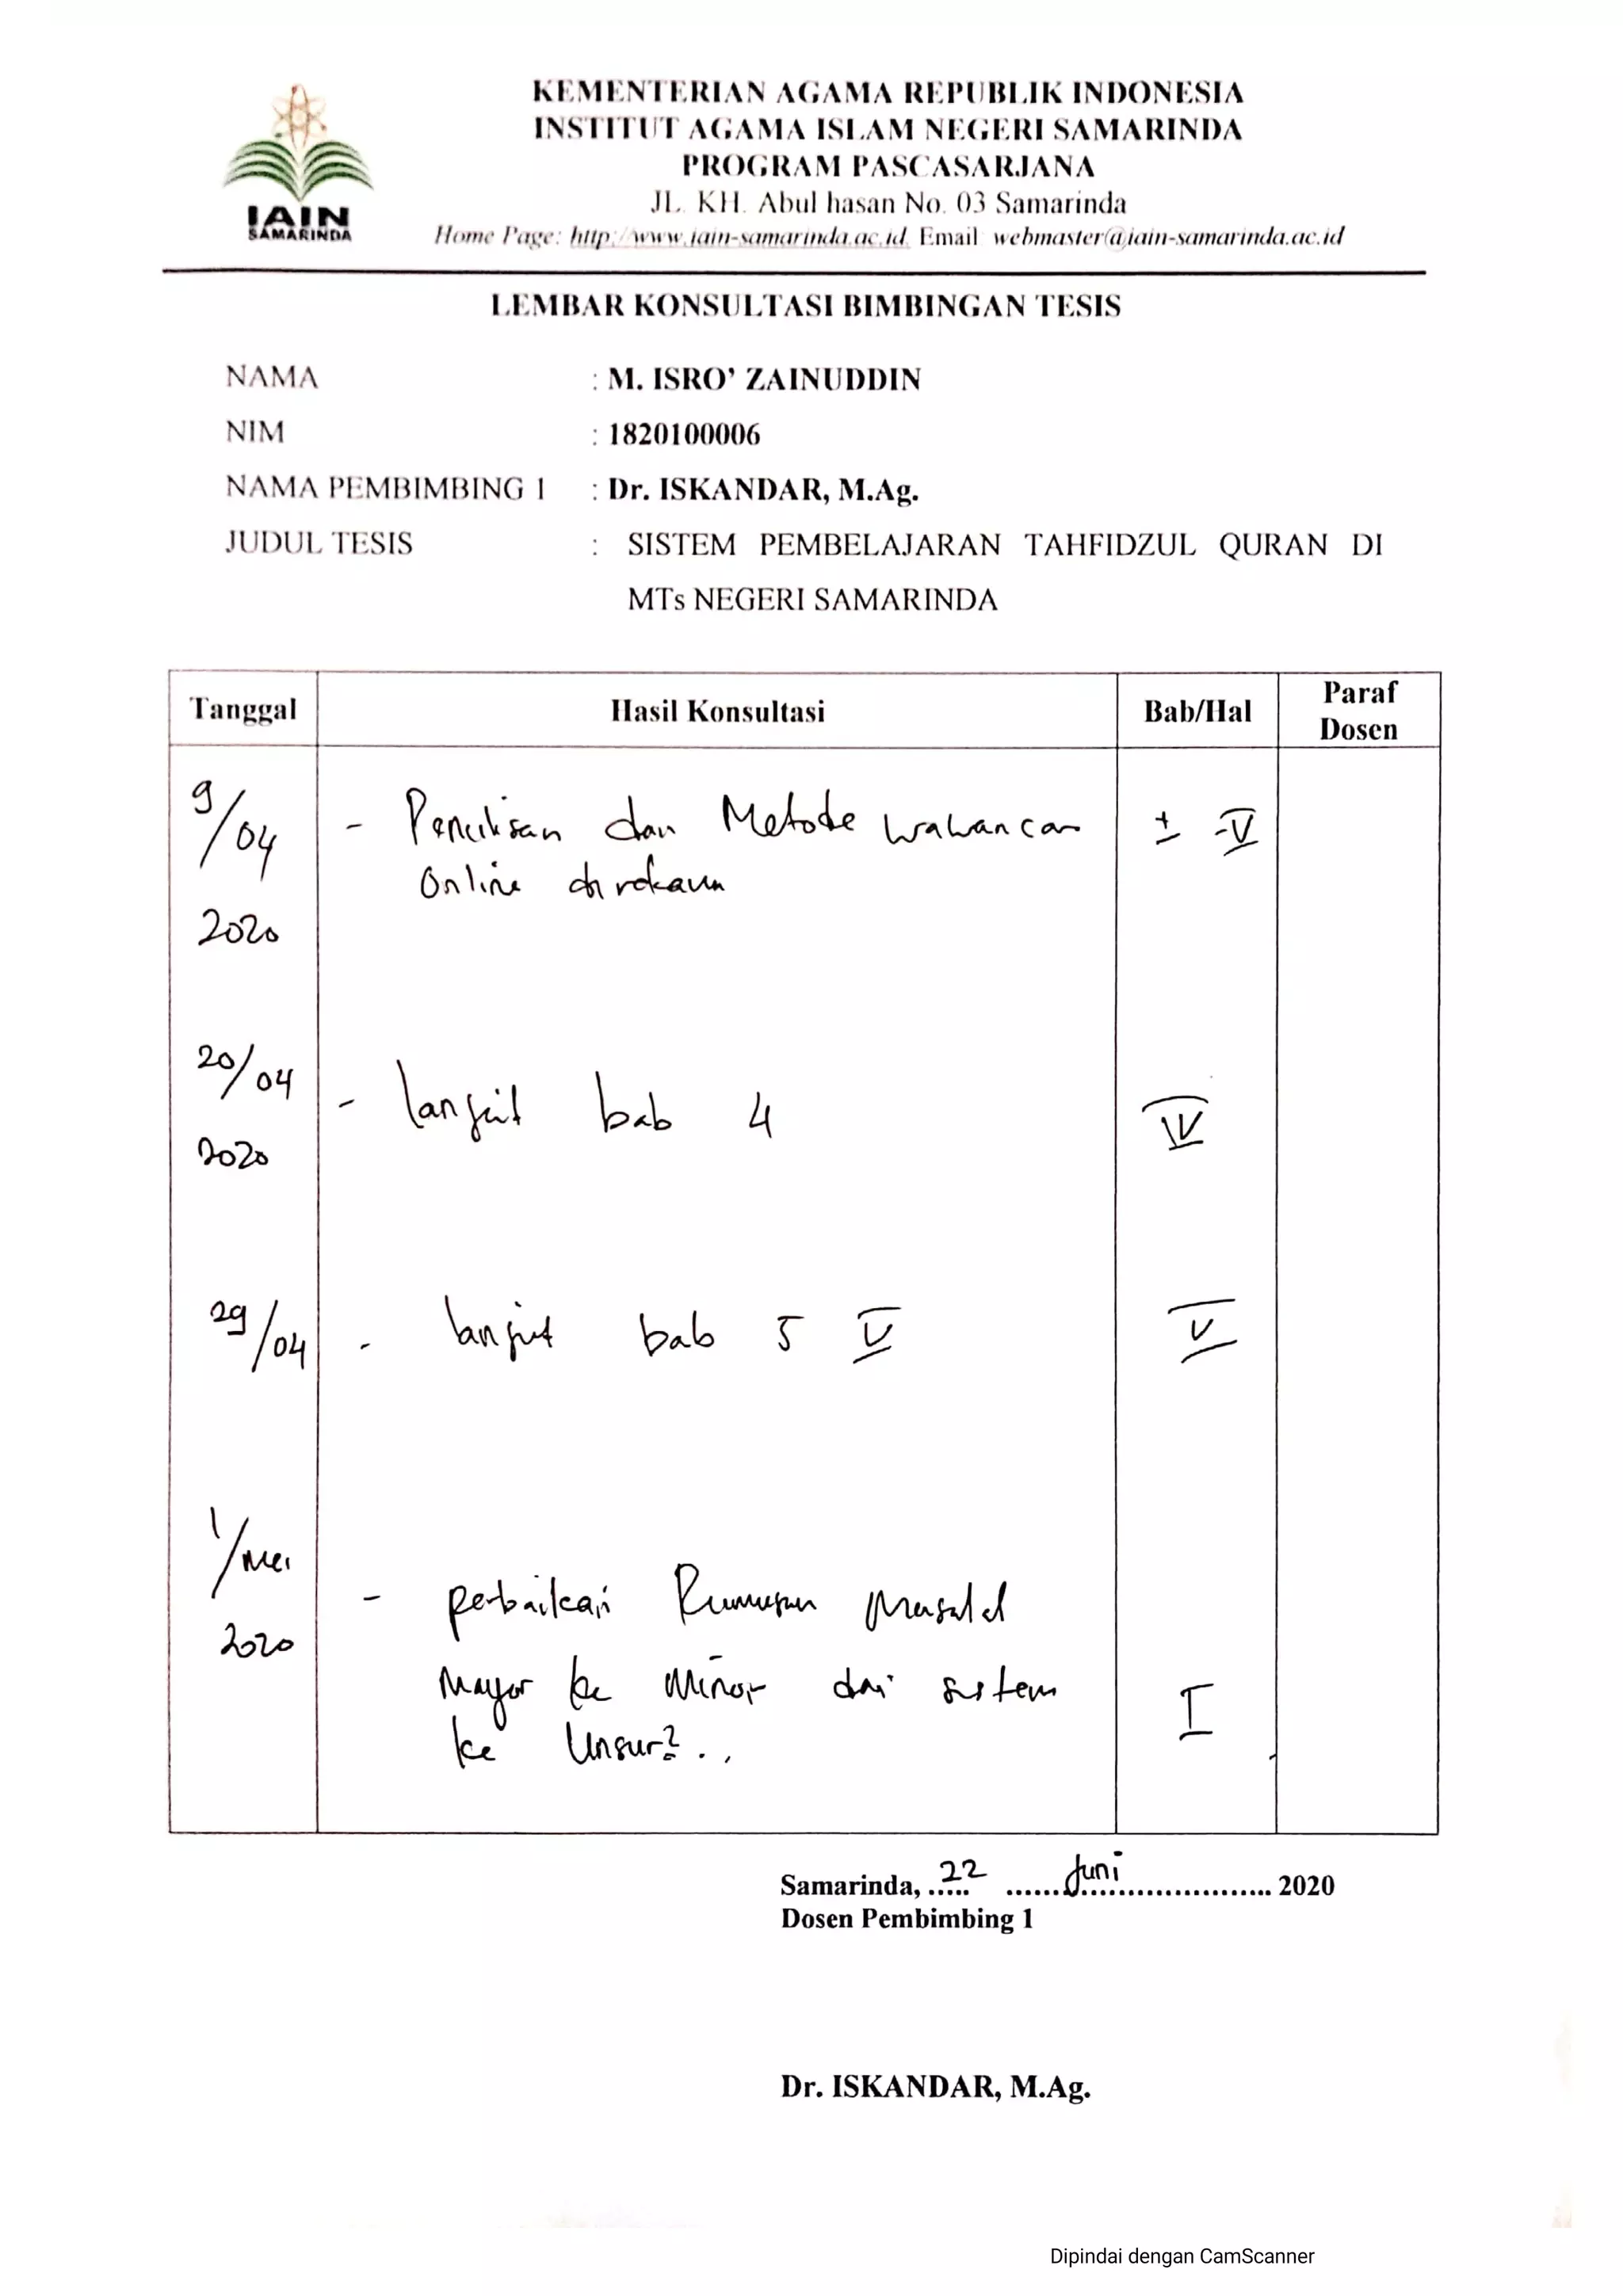 KEMENTERIAN AGAMA REPUBLIK INDONESIA
INSTITUT AGAMA ISLAM NEGERI SAMARINDA
PROGRAM PASCASARJANA
JL. KH. Abul hasan No. 03 Samarinda
Home Page: http://www.iain-samarinda.ac.id Email webmaster@iain-samarinda.ac.id
IAIN
SAMARINDA
LEMBAR KONSULTASI BIMBINGAN TESIS
NAMA : M. ISRO' ZAINUDDIN
NIM : 1820100006
NAMA PEMBIMBING 1 : Dr. ISKANDAR, M.Ag.
JUDUL TESIS : SISTEM PEMBELAJARAN TAHFIDZUL QURAN DI
MTs NEGERI SAMARINDA
Tanggal Hasil Konsultasi Bab/Hal Paraf Dosen
9/04 - Penulisan dan Metode wawancara I - V
Online di rekam
2020
20/04 - lanjut bab 4 IV
2020
29/04 - lanjut bab 5 V V
1/Mei - perbaikan Rumusan Masalah
2020
Mayor ke Minor dari sistem I
ke Unsur2 . ,
Samarinda, ..22.. ......Juni...................... 2020
Dosen Pembimbing 1
Dr. ISKANDAR, M.Ag.
Dipindai dengan CamScanner